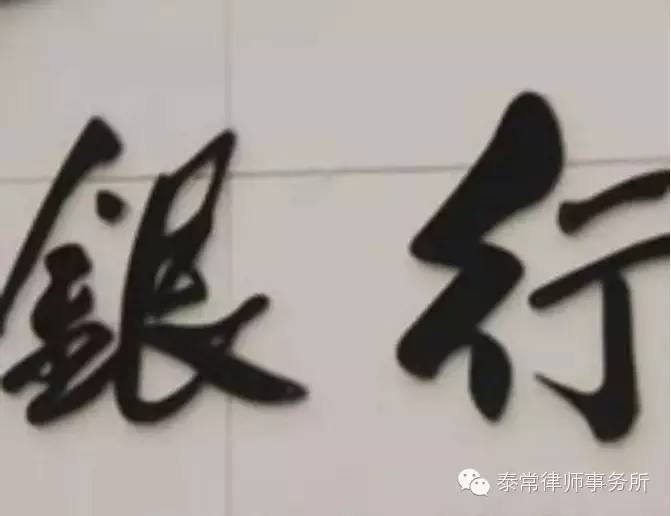 銀行
泰常律师事务所